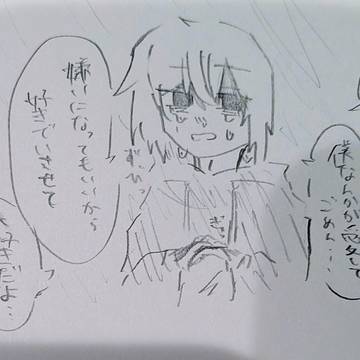 僕なんかが愛して
ごめん…
嫌いになってもいいから
好きでいさせて
ぎゅ
好きだよ…